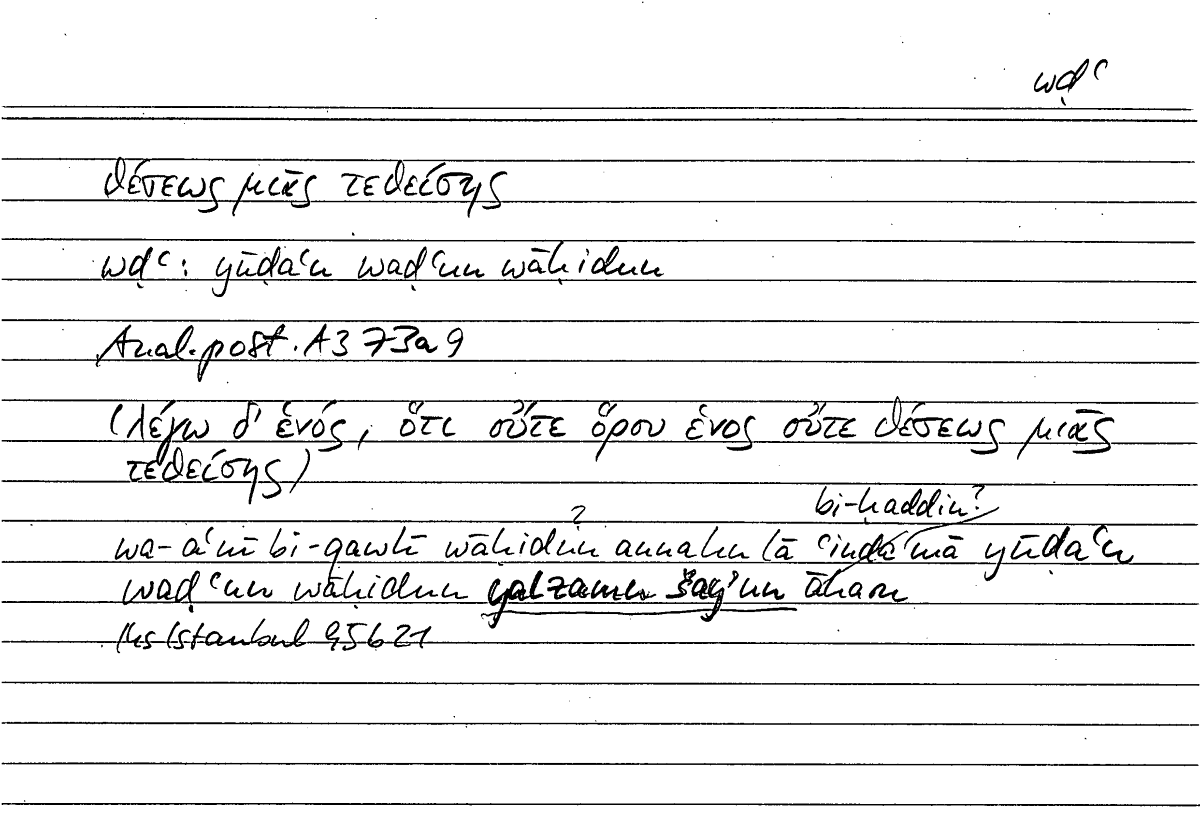 wḍʿ
θέσεως μιᾶς τεθείσης
wḍʿ: yūḍaʿu waḍʿun wāḥidun
Anal.post. A3 73a9
(λέγω δ' ἑνός, ὅτι οὔτε ὅρου ἑνος οὔτε θέσεως μιᾶς
τεθείσης)
? bi-ḥaddin?
wa-aʿnī bi-qawlī wāḥidun annahu lā ʿindamā yūḍaʿu
waḍʿun wāḥidun yalzamu šayʾun āḫaru
Hs Istanbul